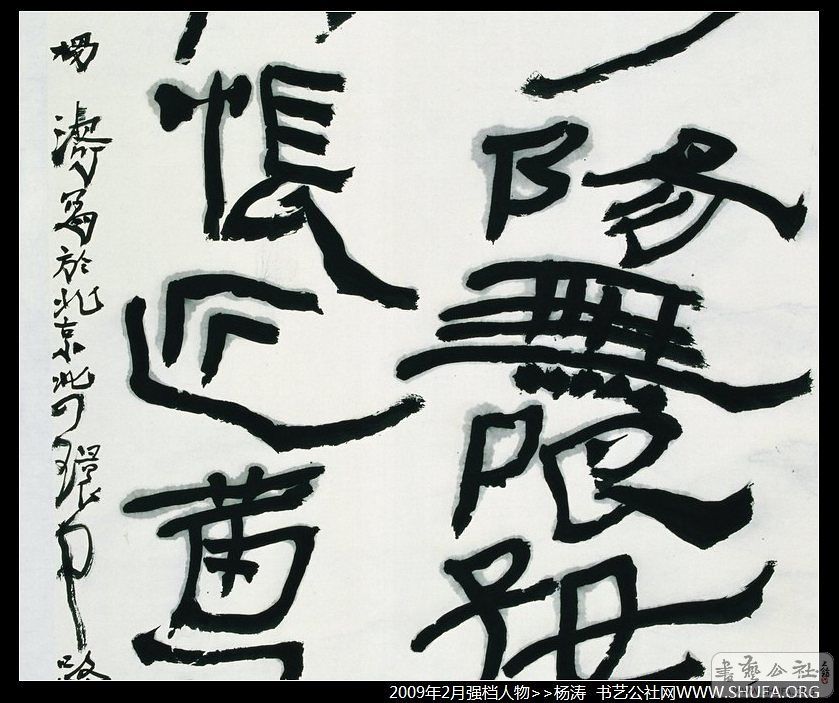 陽無限好
悵近黄
楊濤寫於北京北四環中路
書藝公社
2009年2月强档人物>>杨涛 书艺公社网WWW.SHUFA.ORG